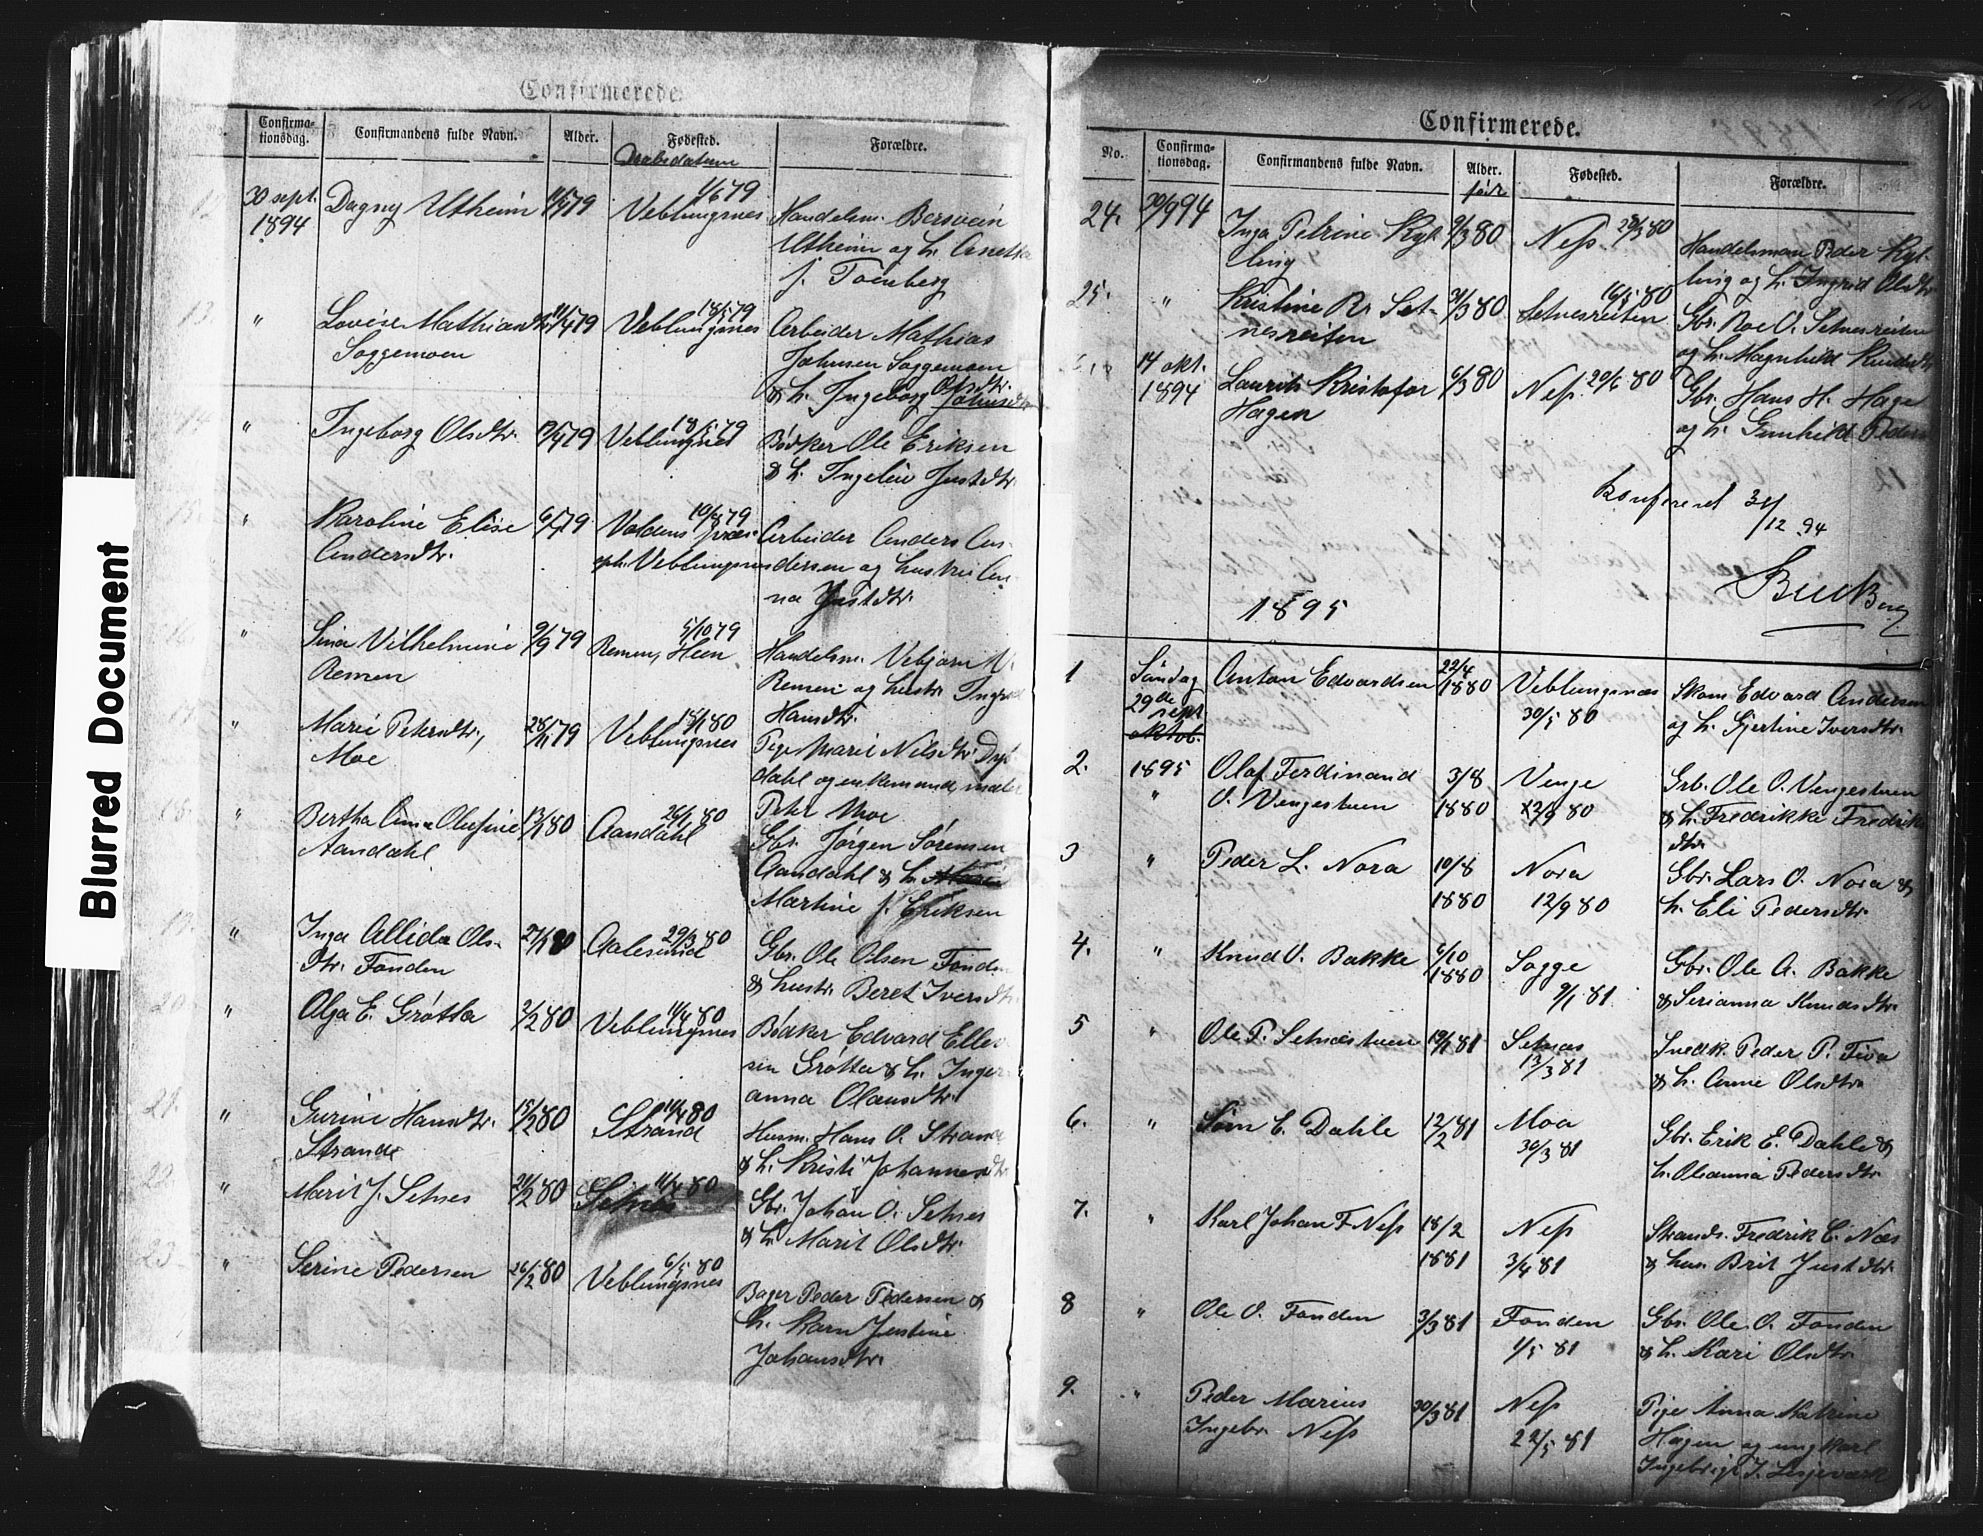 Blurred Document
Confirmerede.
Confirma-
tionsdag.
Confirmandens fulde Navn.
Alder.
Fødested.
Daabsdatum
Forældre.
12.
30 sept.
1894
Dagny Utheim
79
1/6 79
Veblungsnes
Handelsm. Bersvein
Utheim og h.
f. Tornberg
13.
"
Lovise Mathiasdtr
Soggemoen
79
18/5 79
Veblungsnes
Arbeider Mathias
Johnsen Soggemoen
& h. Ingeborg Olsdtr.
14
"
Ingeborg Olsdtr.
79
18/5 79
Veblungsnes
Bødker Ole Eriksen
& h. Ingeleiv Justdtr.
15.
"
Karoline Elise
Andersdtr.
79
79
Voldens
Veblungsnes
Arbeider Anders An-
dersen og hustru An-
na Justdtr.
16.
"
Sina Vilhelmine
Remen
9/9 79
5/10 79
Remen, Heen
Handelsm. Vebjørn
Remen og hustr. Ingrid
Hansdtr.
17.
"
Marie Petersdtr.,
Moe
28/11 79
18/1 80
Veblungsnes
Pige Marie Nilsdtr.
dahl og enkemand
Peter Moe
18.
"
Bertha Anna Olufine
Aandahl
13/1 80
26/1 80
Aandahl
Gbr. Jørgen Sørensen
Aandahl & h.
Martine f. Eriksen
19.
"
Inga Allida Ols-
dtr. Fonden
27/1 80
29/3 80
Aalesund
Gbr. Ole Olsen Fonden
& hustr. Beret Iversdtr.
20.
"
Olga E. Grøtta
2/2 80
11/4 80
Veblungsnes
Bødker Edvard Elle-
sen Grøtta & h. Inger-
anna Olausdtr.
21.
"
Gurine Hansdtr.
Strande
15/2 80
11/4 80
Strand
Husm. Hans O. Strand
& h. Kristi Johannesdtr.
22.
"
Marit J. Setnes
21/2 80
11/4 80
Setnes
Gbr. Johan O. Setnes
& h. Marit Olsdtr.
23.
"
Serine Pedersen
26/2 80
6/5 80
Veblungsnes
Bager Peder Pedersen &
h. Karn Justine
Johansdtr.
Confirmerede.
No.
Confirma-
tionsdag.
Confirmandens fulde Navn.
Alder.
før
Fødested.
Forældre.
24.
30/9 94
Inga Petrine Kyl-
ling
9/3 80
Ness 28/3 80
Handelsman Peder Kyl-
ling og h. Ingrid Olsdtr
25.
"
Kristine R. Set-
nesreiten
21/3 80
16/5 80
Setnesreiten
Gbr. Roe O. Setnesreiten
og h. Magnhild Knudsdtr
14 okt.
1894
Laurits Kristofer
Hagen
6/3 80
Ness 80
Gbr. Hans H. Hage
og h. Gunhild Peders
Konfereret 31/12 94
1895
1
Søndag
29de
sept
oktob.
1895
Anton Edvardsen
22/4
1880
Veblungsnæs
30/5 80
Skom. Edvard Andersen
og h. Gjertine Iversdtr.
2.
"
Olaf Ferdinand
O. Vengestuen
3/8
1880
Venge
12/9 80
Gbr. Ole O. Vengestuen
& h. Fredrikke Fredriks
dtr.
3
"
Peder L. Nora
10/8
1880
Nora
12/9 80
Gbr. Lars O. Nora &
h. Eli Pedersdtr.
4.
"
Knud O. Bakke
6/10
1880
Sogge
9/1 81.
Gbr. Ole A. Bakke
& Serianna Knudsdtr.
5
"
Ole P. Setnæstuen
19/1 81
Setnæs
13/3 81
Snedk. Peder P. Fiva
& h. Anne Olsdtr.
6.
"
Søren E. Dahle
12/2 81
Moa
30/3 81
Gbr. Erik E. Dahle &
h. Oleanna Pedersdtr.
7.
"
Karl Johan F. Ness
18/2
1881
Ness
3/4 81
Strands. Fredrik C. Næs
& hus. Brit Justdtr.
8
"
Ole O. Fonden
3/3 81
Fonden
1/5 81
Gbr. Ole. O. Fonden
& h. Kari Olsdtr.
9.
"
Peder Marius
Ingebr. Ness
30/3 81
Ness
22/5 81
Pige Anna Katrine
Hagen og ungkarl
Ingebrigt J. Lesjeværk